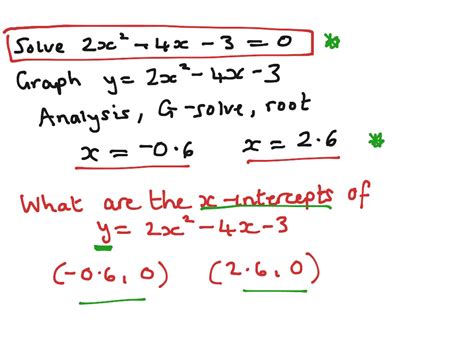 Solve 2x² - 4x - 3 = 0 *
Graph y = 2x² - 4x - 3
Analysis, G-solve, root
x = -0.6 x = 2.6 *
What are the x-intercepts of
y = 2x² - 4x - 3
(-0.6, 0) (2.6, 0)